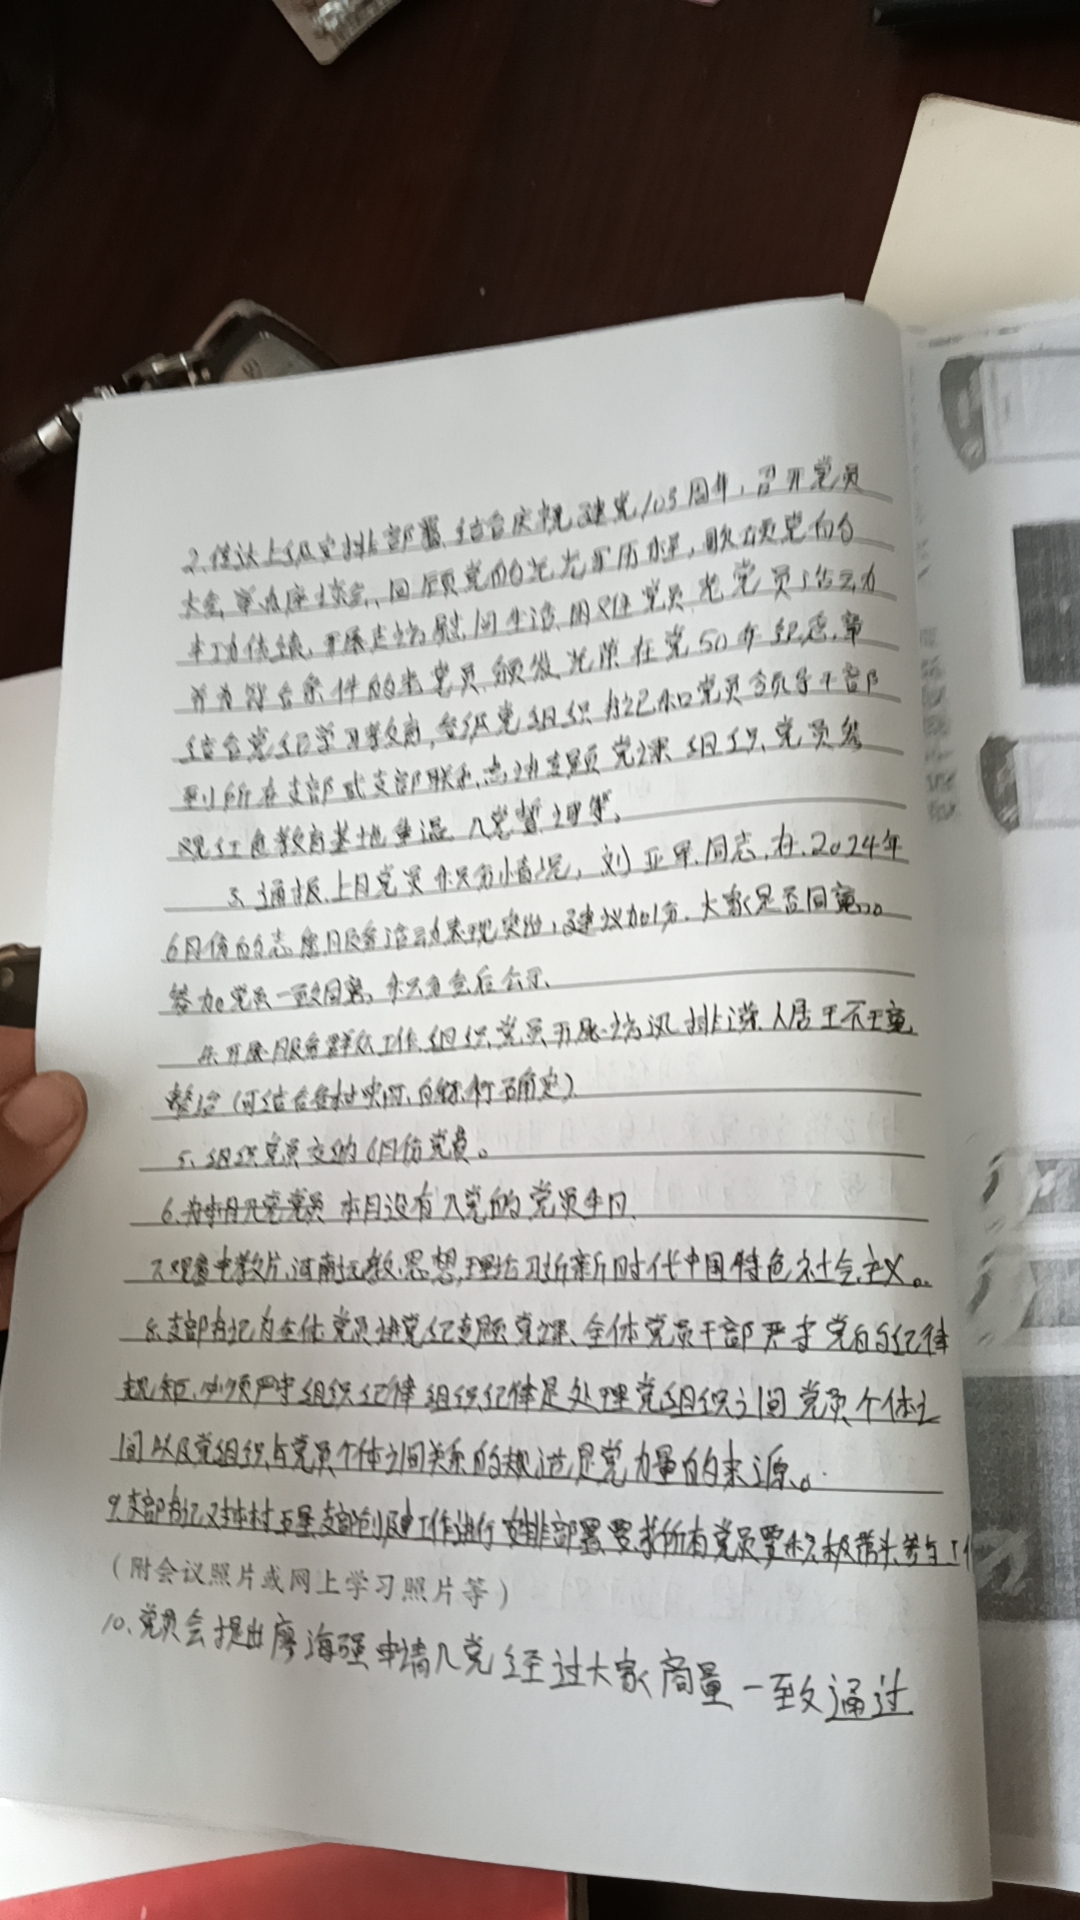 2、传达上级安排部署、结合庆祝建党103周年,召开党员
大会、举办座谈会、回顾党的光荣历史,歌颂党的
丰功伟绩,开展走访慰问生活困难党员、老党员活动
并为符合条件的老党员颁发光荣在党50年纪念章
结合党纪学习教育,各级党组织书记和党员领导干部
到所在支部或支部联系点讲专题党课 组织党员参
观红色教育基地重温入党誓词等。
3、通报上月党员积分情况,刘亚军同志,在2024年
6月份的志愿服务活动表现突出,建议加1分,大家是否同意。
参加党员一致同意,积分会后公示、
4、开展服务群众工作 组织党员开展 访 排 人居环境
整治(可结合各村实际,自行确定)
5、组织党员交纳6月份党费。
6、为本月入党党员 本月没有入党的党员生日
7、观看电教片,河南远教、思想理论 习近新时代中国特色社会主义。
8、支部书记为全体党员讲党纪专题党课、全体党员干部严守党的纪律
规矩,必须严守组织纪律 组织纪律是处理党组织之间 党员个体之
间以及党组织与党员个体之间关系的规 是党力量的来源。
9、支部书记对本村五星支部创建工作进行安排部署,要求所有党员要积极带头参与工作
(附会议照片或网上学习照片等)
10、党员会提出廖海强申请入党 经过大家商量一致通过